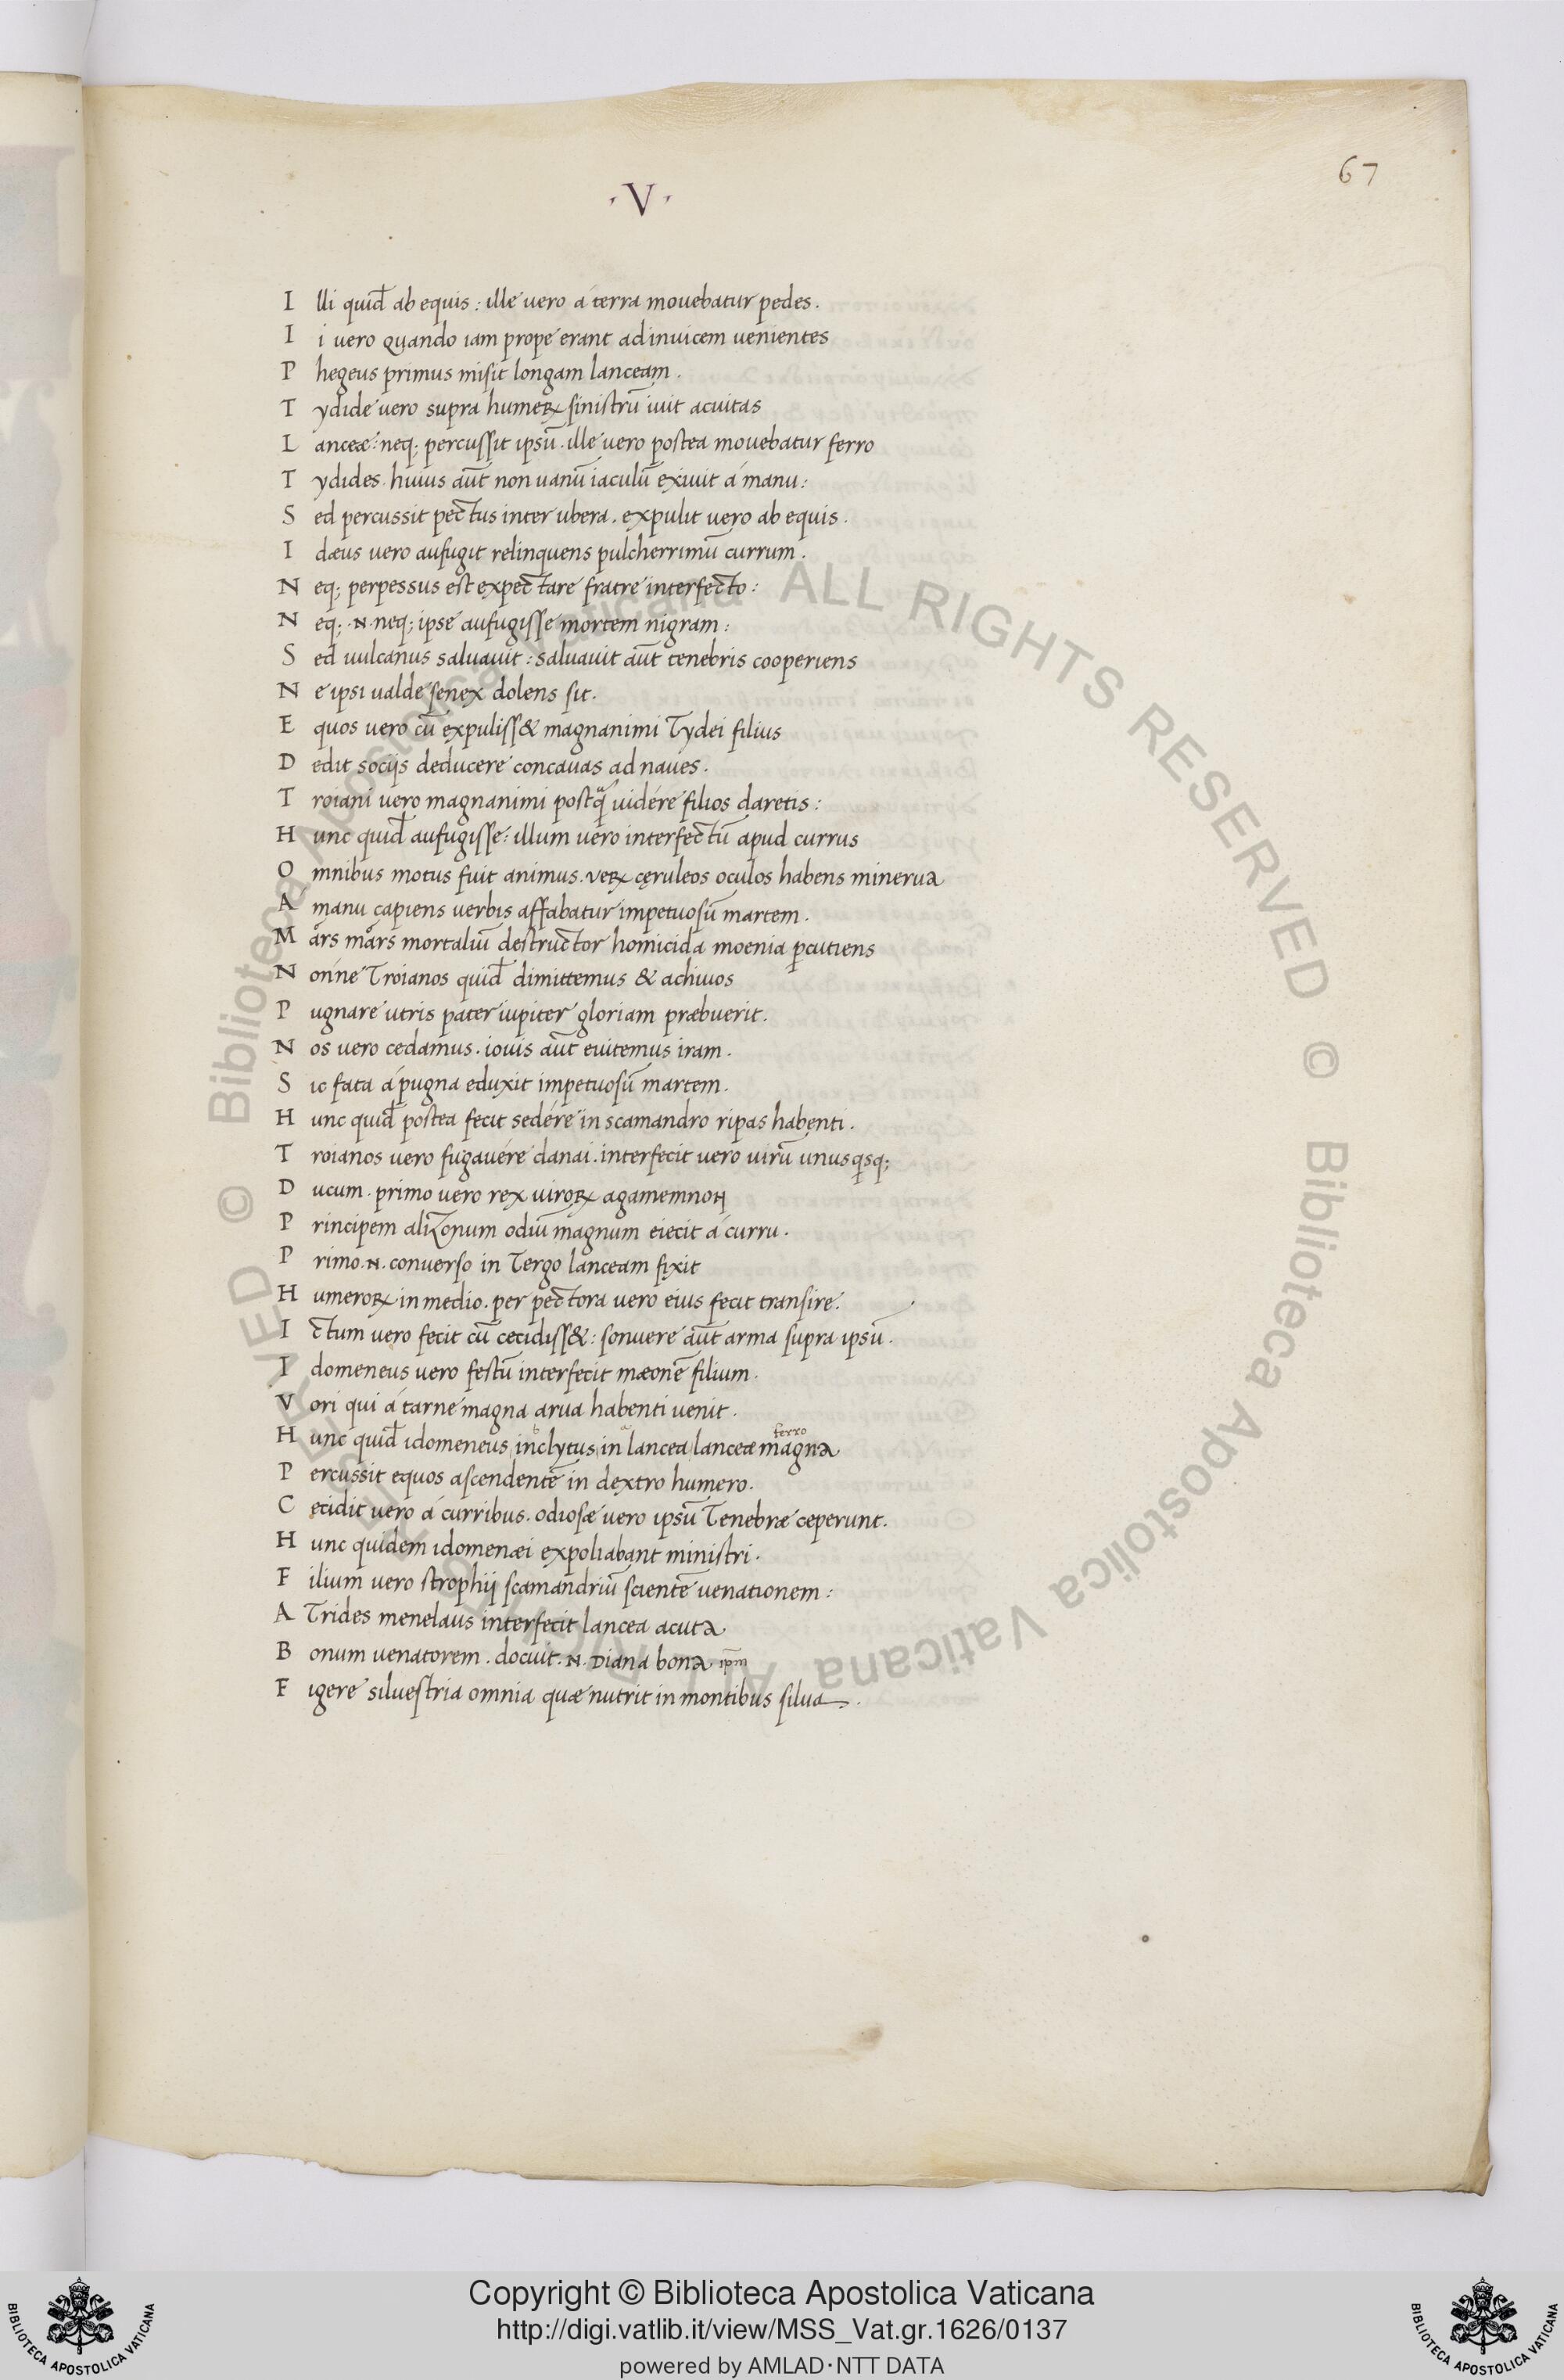 67
·V·
I lli quid̃ ab equis : ille vero á terra mouebatur pedes .
I i uero quando iam prope erant ad inuicem uenientes
P hegeus primus misit longam lanceam .
T ydide uero supra humeꝝ sinistrũ iuit acuitas
L anceæ : neq; percussit ipsũ . ille uero postea mouebatur ferro
T ydides . huius aũt non uanũ iaculũ exiuit á manu :
S ed percussit pectus inter ubera . expulit uero ab equis .
I dæus uero aufugit relinquens pulcherrimũ currum .
N eq; perpessus est expectare fratre interfecto :
N eq; .N. neq; ipse aufugisse mortem nigram :
S ed uulcanus saluauit : saluauit aũt tenebris cooperiens
N e ipsi ualde senex dolens sit .
E quos uero cũ expuliss& magnanimi Tydei filius
D edit socijs deducere concauas ad naues .
T roiani uero magnanimi postq̃ uidére filios daretis :
H unc quid̃ aufugisse : illum uero interfectũ apud currus
O mnibus motus fuit animus . veꝝ cęruleos oculos habens minerua
A manu capiens uerbis affabatur impetuosũ martem .
M ars mars mortaliũ destructor homicida moenia ꝑcutiens
N onne Troianos quid̃ dimittemus & achiuos
P ugnare utris pater iupiter gloriam præbuerit .
N os uero cedamus . iouis aũt euitemus iram .
S ic fata á pugna eduxit impetuosũ martem .
H unc quid̃ postea fecit sedére in scamandro ripas habenti .
T roianos uero fugauére danai . interfecit uero uirũ unusqsq;
D ucum . primo uero rex uiroꝝ agamemnon
P rincipem alizonum odiũ magnum eiecit á curru .
P rimo .N. conuerso in Tergo lanceam fixit
H umeroꝝ in medio . per pectora uero eius fecit transire .
I ctum uero fecit cũ cecidiss& : sonuere aũt arma supra ipsũ .
I domeneus uero festũ interfecit mæonẽ filium .
V ori qui á tarne magna arua habenti uenit .
ferro
H unc quid̃ idomeneus inclytus in lancea lanceæ magna
P ercussit equos ascendentẽ in dextro humero .
C ecidit uero á curribus . odiosæ uero ipsũ Tenebræ ceperunt .
H unc quidem idomenæi expoliabant ministri .
F ilium uero strophij scamandriũ scientẽ uenationem :
A Trides menelaus interfecit lancea acuta
B onum uenatorem . docuit .N. Diana bona ipm̃
F igere siluestria omnia quæ nutrit in montibus silua .
Copyright © Biblioteca Apostolica Vaticana
http://digi.vatlib.it/view/MSS_Vat.gr.1626/0137
powered by AMLAD·NTT DATA
BIBLIOTECA APOSTOLICA VATICANA
BIBLIOTECA APOSTOLICA VATICANA
© Biblioteca Apostolica Vaticana ALL RIGHTS RESERVED © Biblioteca Apostolica Vaticana ALL RIGHTS RESERVED